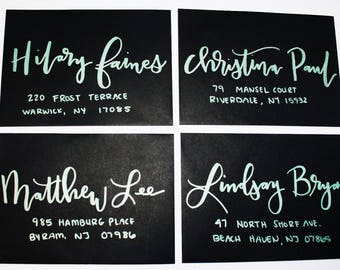 Hilary Faines
220 FROST TERRACE
WARWICK, NY 17085
Christina Paul
79 MANSEL COURT
RIVERDALE, NY 15932
Matthew Lee
985 HAMBURG PLACE
BYRAM, NJ 07986
Lindsay Brya
47 NORTH SHORE AVE.
BEACH HAVEN, NJ 07865